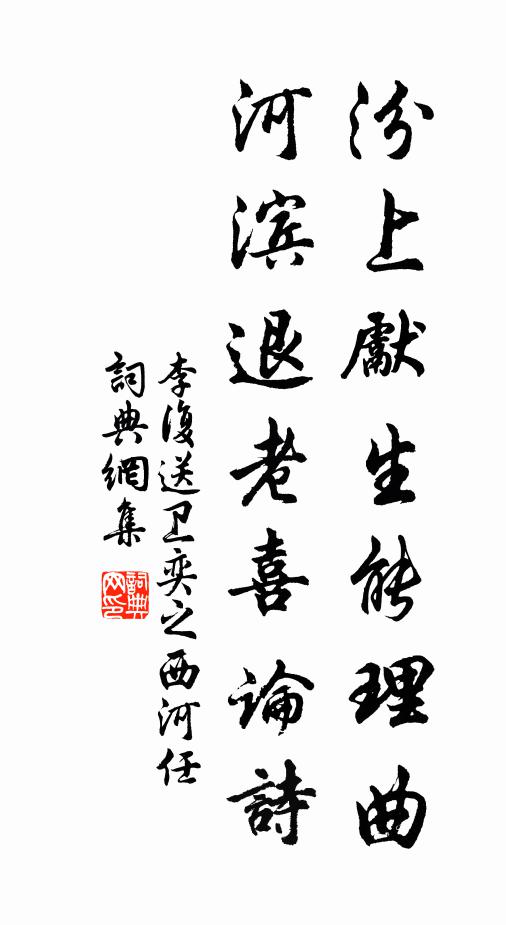 汾上獻生能理曲
河滨退老喜論詩
李復送卫奕之西河任
詞典網集
詞典网印